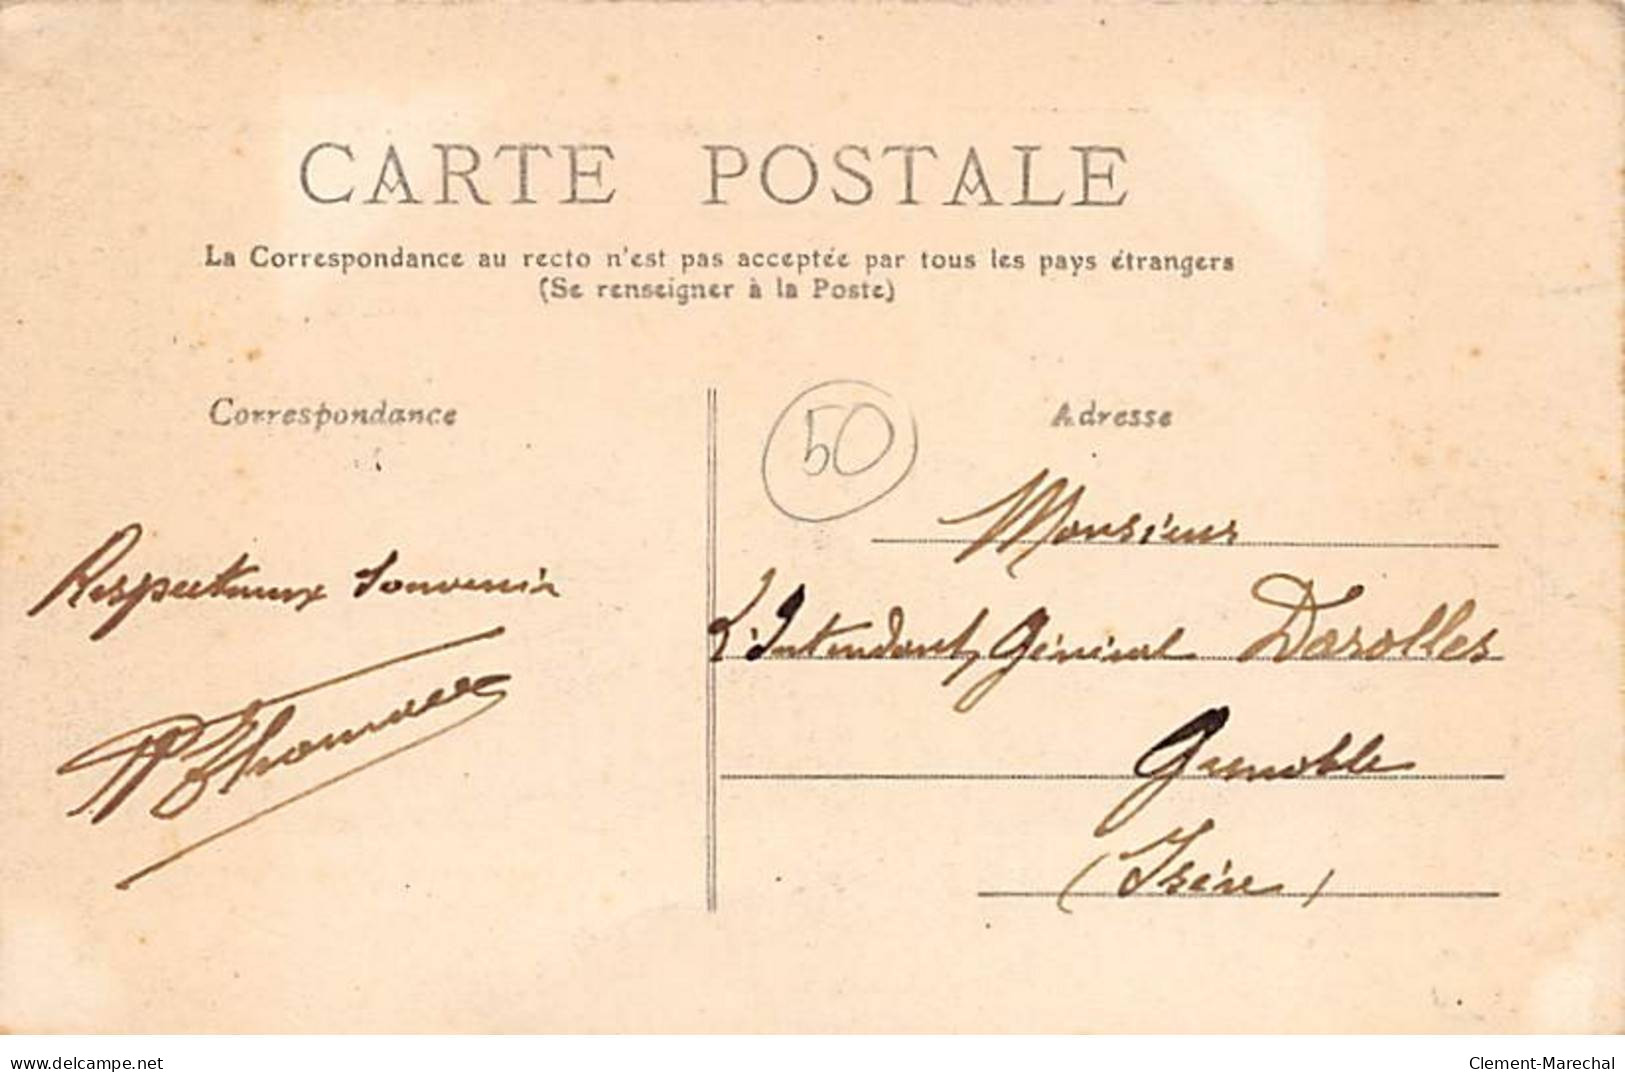 CARTE POSTALE
La Correspondance au recto n'est pas acceptée par tous les pays étrangers
(Se renseigner à la Poste)
Correspondance
Respectueux souvenir
50
Adresse
Monsieur
L'Intendant Général Darolles
Grenoble
(Isère)
delcampe.net
Clement-Marechal